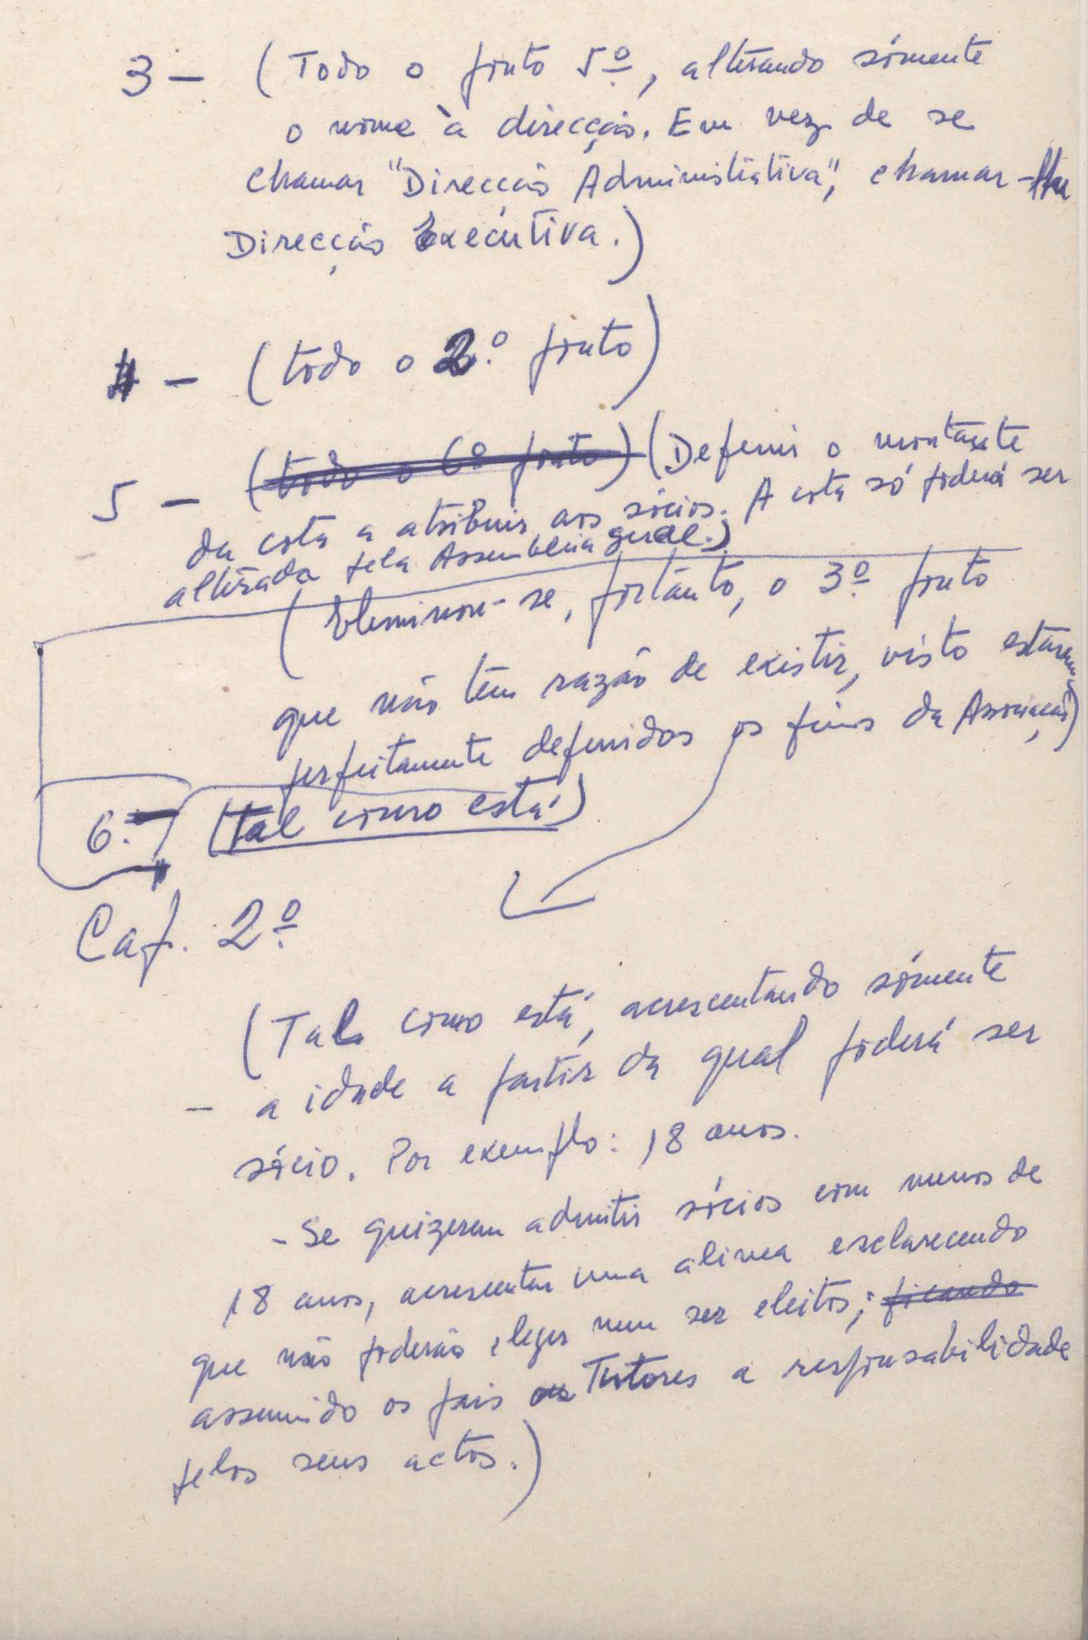 3 - (Todo o ponto 5º, alterando sómente
o nome à direcção. Em vez de se
chamar "Direcção Administrativa", chamar-lhe
Direcção Executiva.)
4 - (todo o 2.º ponto)
5 - (todo o 6º ponto) (Defenir o montante
da cota a atribuir aos sócios. A cota só poderá ser
alterada pela Assembleia geral.)
(Eleminou-se, portanto, o 3º ponto
que não têm razão de existir, visto estarem
perfeitamente defenidos os fins da Associação)
6.- (Tal como está)
Cap. 2º
(Tal como está, acrescentando sómente
- a idade a partir da qual poderá ser
sócio. Por exemplo: 18 anos.
- Se quizerem admitir sócios com menos de
18 anos, acrescentar uma alinea esclarecendo
que não poderão eleger nem ser eleitos; ficando
assumido os pais ou Tutores a responsabilidade
pelos seus actos.)